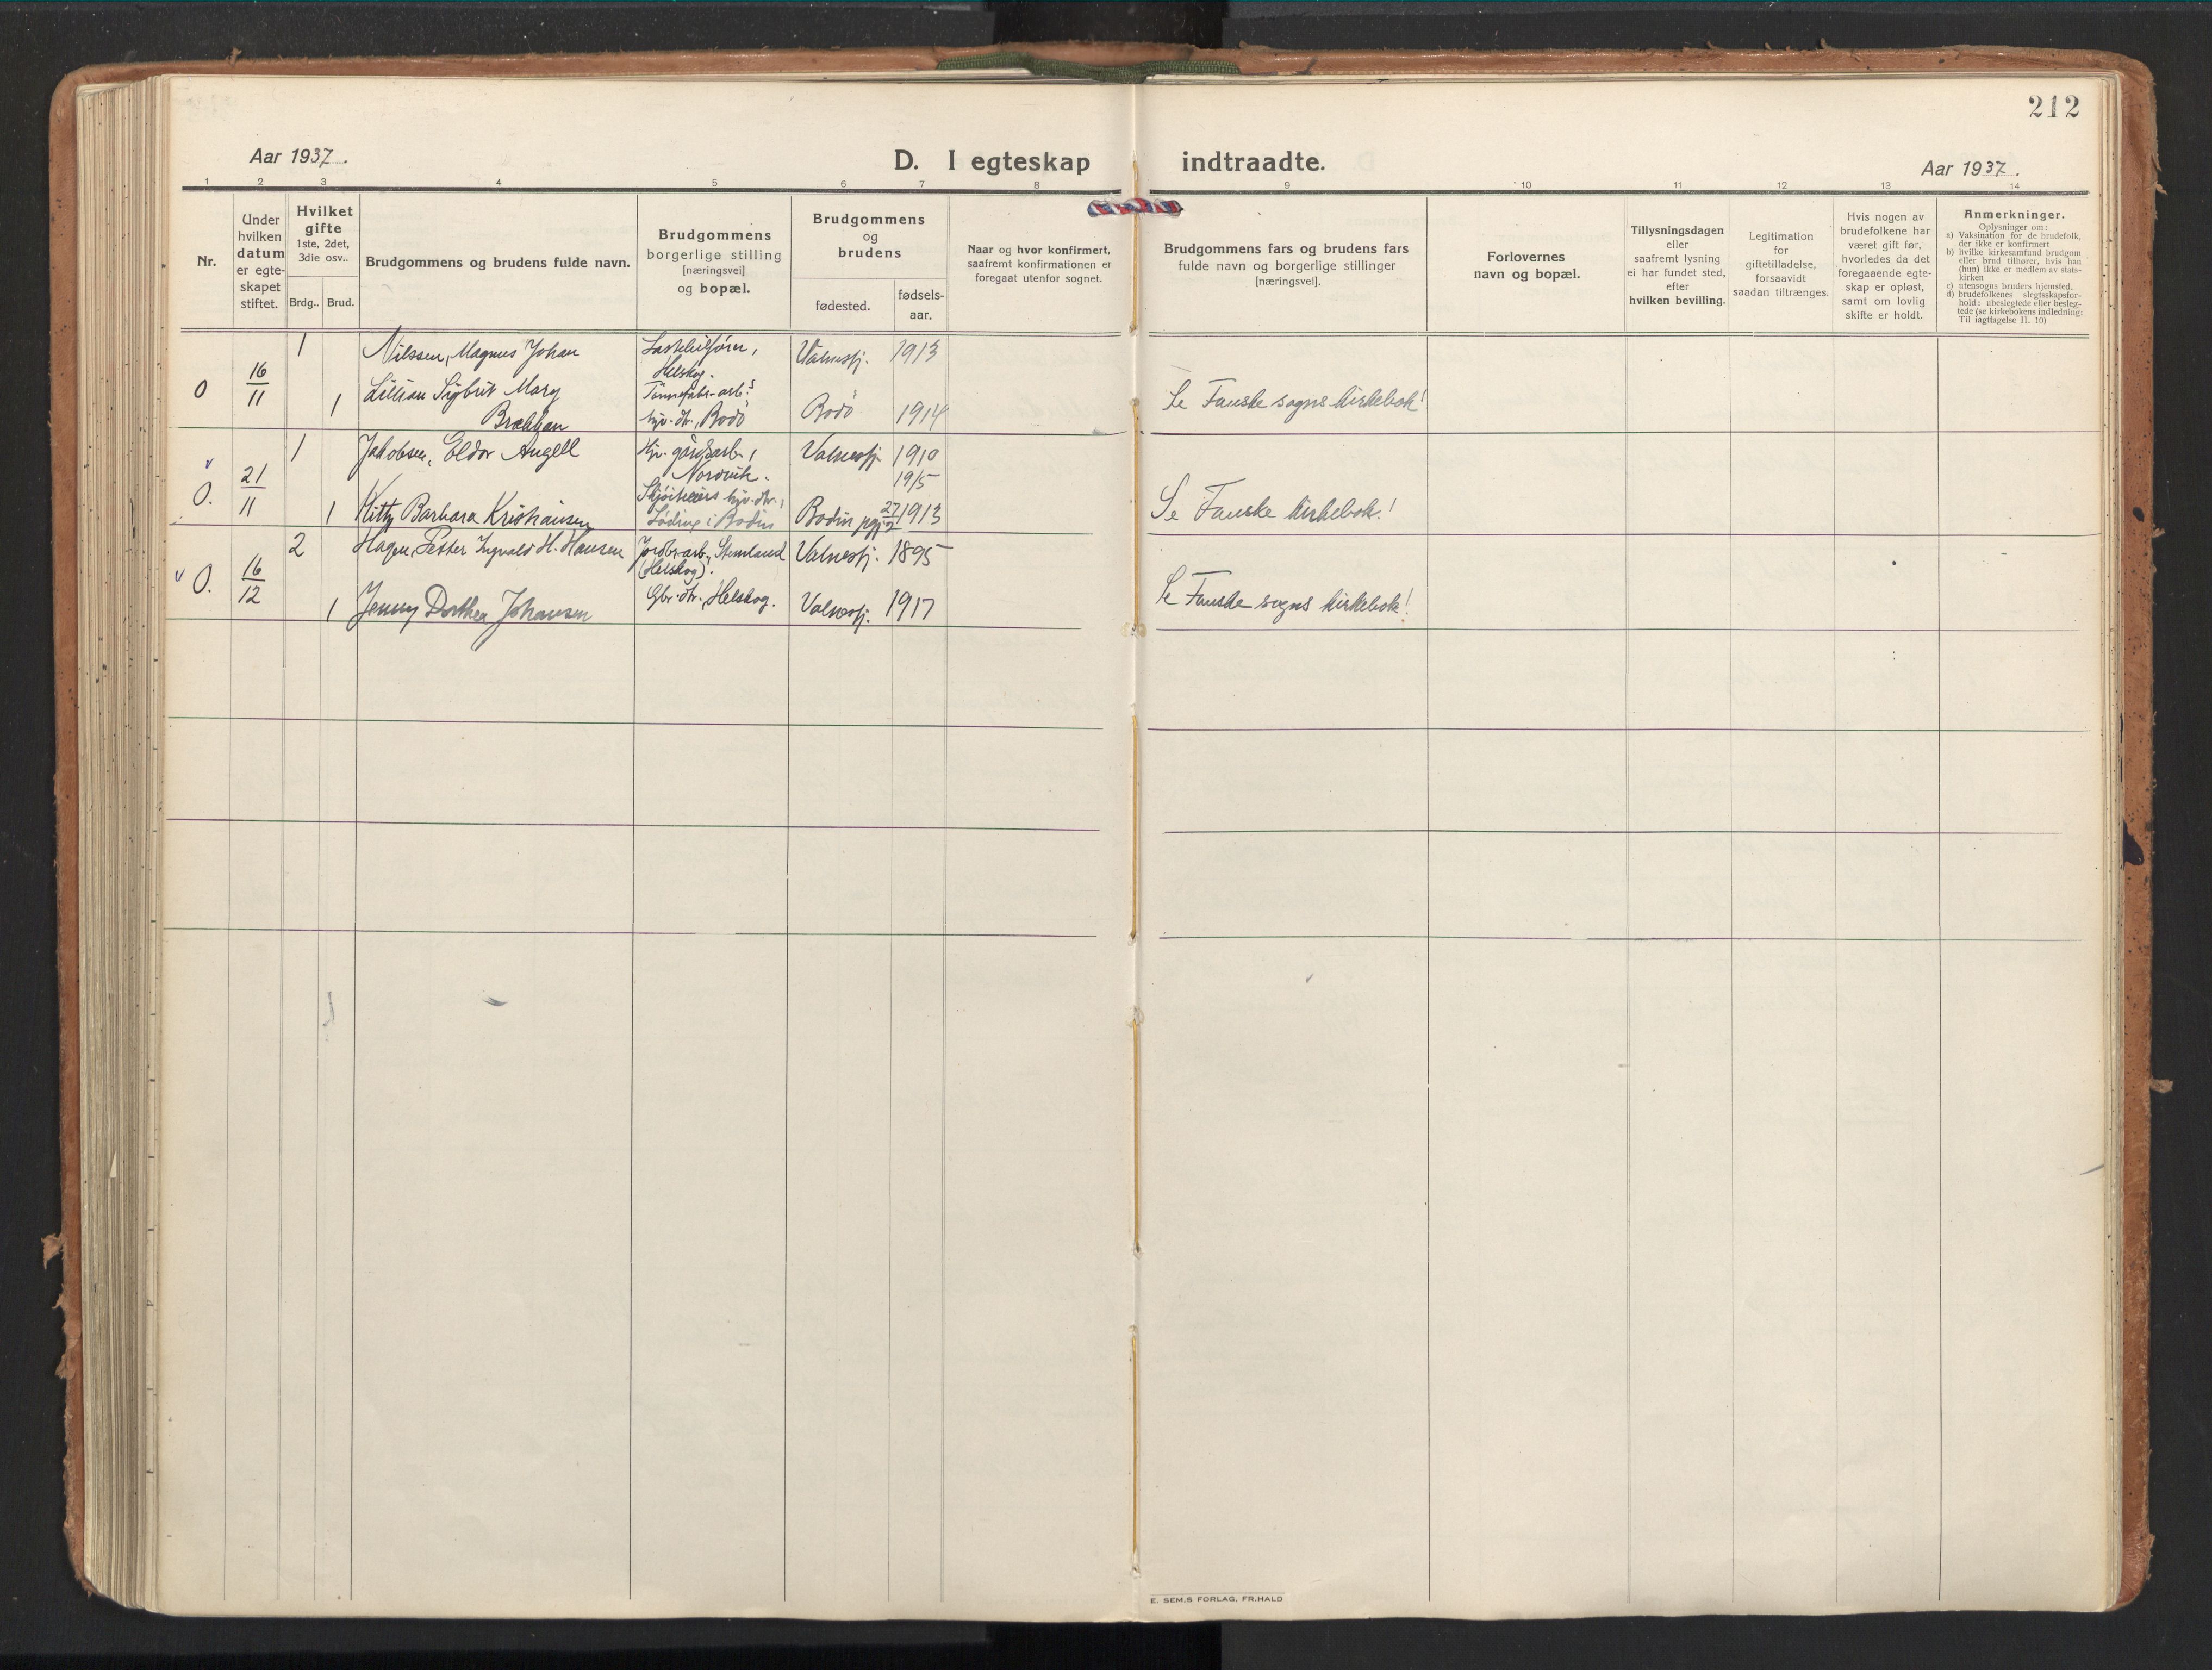 212
Aar 1937.
D. I egteskap indtraadte.
Aar 1937.
1 2 3 4 5 6 7 8 9 10 11 12 13 14
Nr.
Under
hvilken
datum
er egte-
skapet
stiftet.
Hvilket
gifte
1ste, 2det,
3die osv..
Brdg.. Brud.
Brudgommens og brudens fulde navn.
Brudgommens
borgerlige stilling
[næringsvei]
og bopæl.
Brudgommens
og
brudens
fødested.
fødsels-
aar.
Naar og hvor konfirmert,
saafremt konfirmationen er
foregaat utenfor sognet.
Brudgommens fars og brudens fars
fulde navn og borgerlige stillinger
[næringsvei].
Forlovernes
navn og bopæl.
Tillysningsdagen
eller
saafremt lysning
ei har fundet sted,
efter
hvilken bevilling.
Legitimation
for
giftetilladelse,
forsaavidt
saadan tiltrænges.
Hvis nogen av
brudefolkene har
været gift før,
hvorledes da det
foregaaende egte-
skap er opløst,
samt om lovlig
skifte er holdt.
Anmerkninger.
Oplysninger om:
a) Vaksination for de brudefolk,
der ikke er konfirmert
b) hvilke kirkesamfund brudgom
eller brud tilhører, hvis han
(hun) ikke er medlem av stats-
kirken
c) utensogns bruders hjemsted.
d) brudefolkenes slegtsskapsfor-
hold: ubeslegtede eller besleg-
tede (se kirkebokens indledning:
Til iagttagelse II. 10)
1 Nilssen, Magnus Johan Lastebilsjåfør, Valnesfj. 1913
Helskog.
0 16/11 Lillian Sigbrit Mary Tønnefabr-arb.s Se Fauske sogns kirkebok!
1 Brækkan hjv. dtr., Bodø Bodø 1914
1 Jakobsen, Eldor Angell Hjv. gårdsarb., Valnesfj. 1910
Nordvik. 1915
0. 21/11 hjv. dtr.,
1 Kitty Barbara Kristiansen Løding i Bodin Bodin pgj. 27/2 1913 Se Fauske kirkebok!
2 Hagen, Petter Ingvald H. Hansen Jordbr-arb., Stemland Valnesfj. 1895
(Helskog).
0. 16/12 Gbr. dtr., Helskog. Se Fauske sogns kirkebok!
1 Jenny Dorthea Johansen Valnesfj. 1917
E. SEM,S FORLAG, FR.HALD